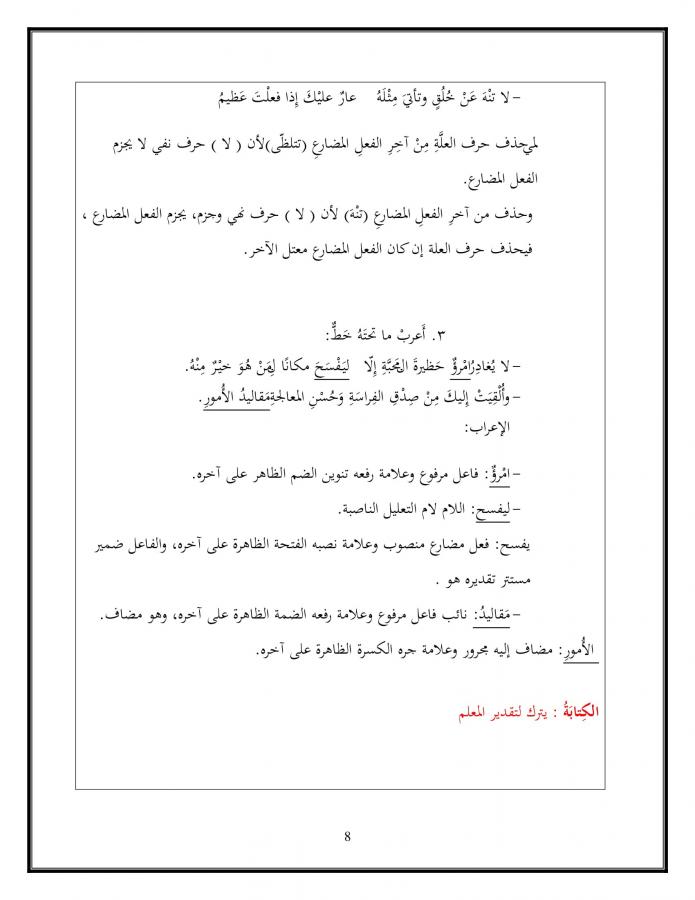 – لا تنْهَ عَنْ خُلُقٍ وتأتيَ مِثْلَهُ عارٌ عليْكَ إِذا فعلْتَ عَظيمُ
لم يحذف حرف العلَّةِ مِنْ آخِرِ الفعلِ المضارعِ (تتلظّى) لأن ( لا ) حرف نفي لا يجزم
الفعل المضارع.
وحذف من آخرِ الفعلِ المضارعِ (تنْهَ) لأن ( لا ) حرف نهي وجزم، يجزم الفعل المضارع ،
فيحذف حرف العلة إن كان الفعل المضارع معتل الآخر.
٣. أَعربْ ما تحتَهُ خَطٌّ:
– لا يُغادِرُ امْرؤٌ حَظيرةَ المَحَبَّةِ إِلّا لِيَفْسَحَ مكانًا لِمَنْ هُوَ خيْرٌ مِنْهُ.
– وأُلْقِيَتْ إِليكَ مِنْ صِدْقِ الفِراسَةِ وَحُسْنِ المعالجةِ مَقاليدُ الأُمورِ.
الإعراب:
– امْرؤٌ: فاعل مرفوع وعلامة رفعه تنوين الضم الظاهر على آخره.
– ليفسح: اللام لام التعليل الناصبة.
يفسح: فعل مضارع منصوب وعلامة نصبه الفتحة الظاهرة على آخره، والفاعل ضمير
مستتر تقديره هو .
– مَقاليدُ: نائب فاعل مرفوع وعلامة رفعه الضمة الظاهرة على آخره، وهو مضاف.
الأُمورِ: مضاف إليه مجرور وعلامة جره الكسرة الظاهرة على آخره.
الكِتابَةُ : يترك لتقدير المعلم
8